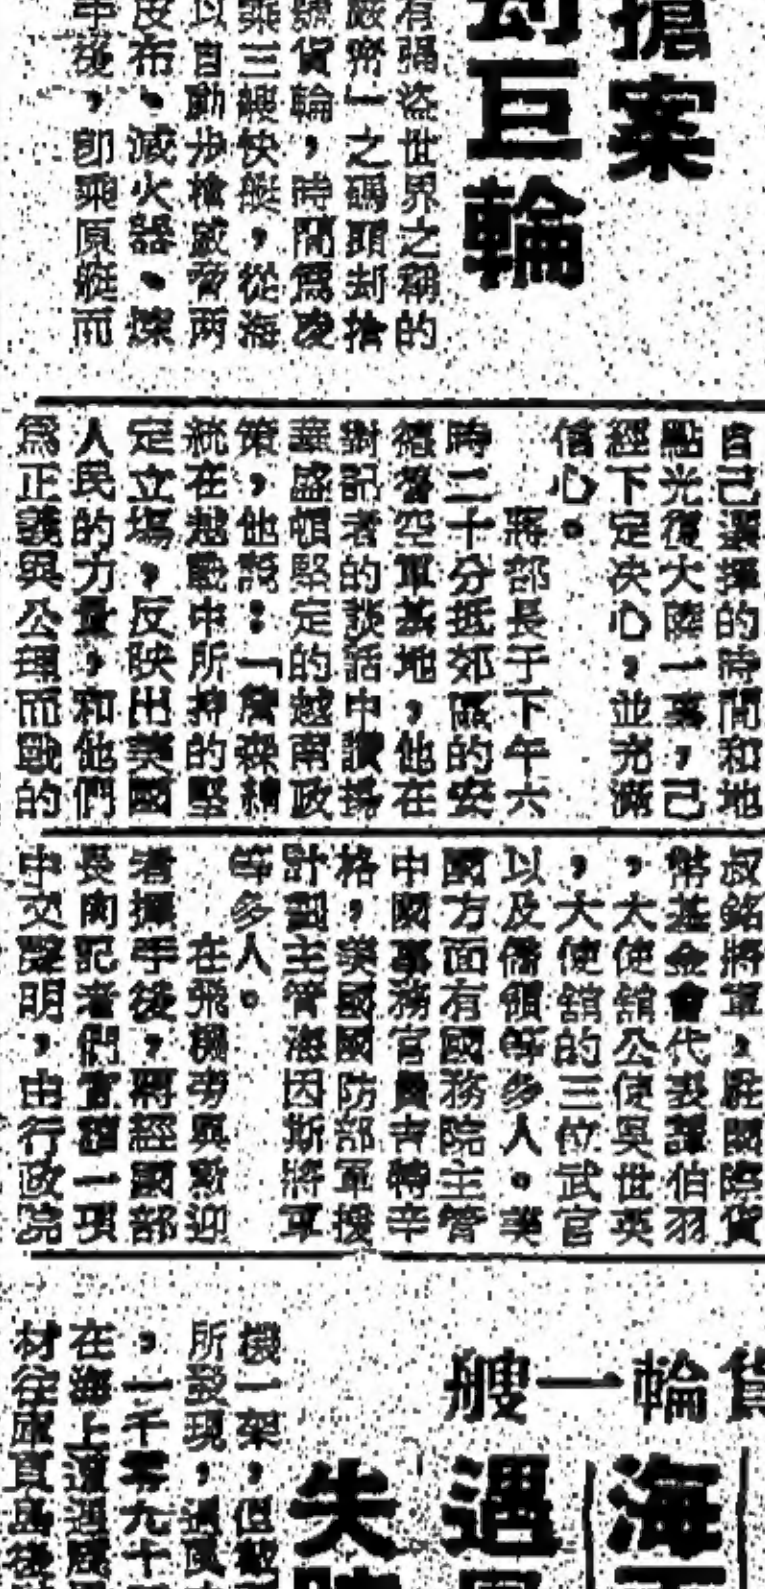 搶案
刧巨輪
有強盜世界之稱的
廠第一之碼頭刧搶
號貨輪，時間爲凌
乘三艘快艇，從海
以自動步槍威脅两
皮布、滅火器、
年後，即乘原艇而
自己選擇的時間和地
點光復大陸一事，己
經下定决心，並充滿
信心。
蔣部長于下午六
時二十分抵郊區的安
德魯空軍基地，他在
對記者的談話中讚揚
華盛頓堅定的越南政
策，他說：「詹森總
統在越戰中所持的堅
定立塲，反映出美國
人民的力量，和他們
爲正義與公理而戰的
叔銘將軍，駐國際貨
幣基金會代表譚伯羽
，大使舘公使吳世英
，大使舘的三位武官
以及僑領等多人。美
國方面有國務院主管
中國事務官員吉特辛
格，美國國防部軍援
計劃主管海因斯將軍
等多人。
在飛機旁與歡迎
者揮手後，蔣經國部
長向記者們宣讀一項
中文聲明，由行政院
貨輪一艘
海
遇
失
機一架，但
所發現，
，一千零九十
在海上遭遇
材往